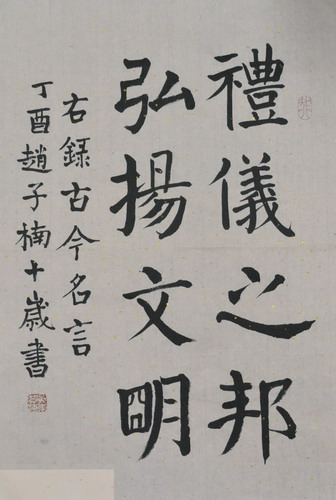 禮儀之邦
弘揚文明
右錄古今名言
丁酉趙子楠十歲書